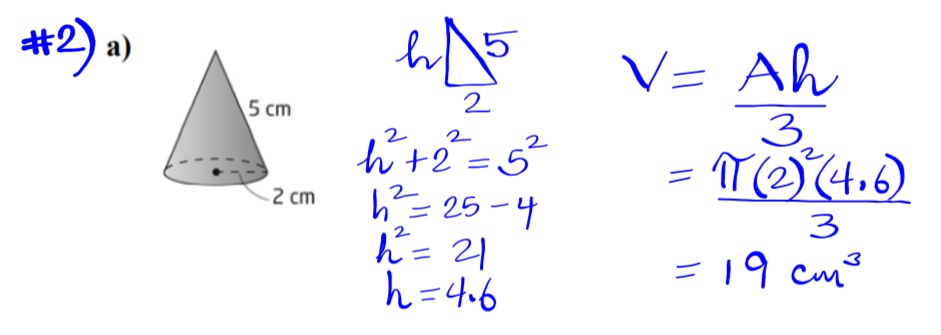 #2) a)
5 cm
2 cm
h 5
2
h² + 2² = 5²
h² = 25 - 4
h² = 21
h = 4.6
V = Ah/3
= π(2)²(4.6)/3
= 19 cm³